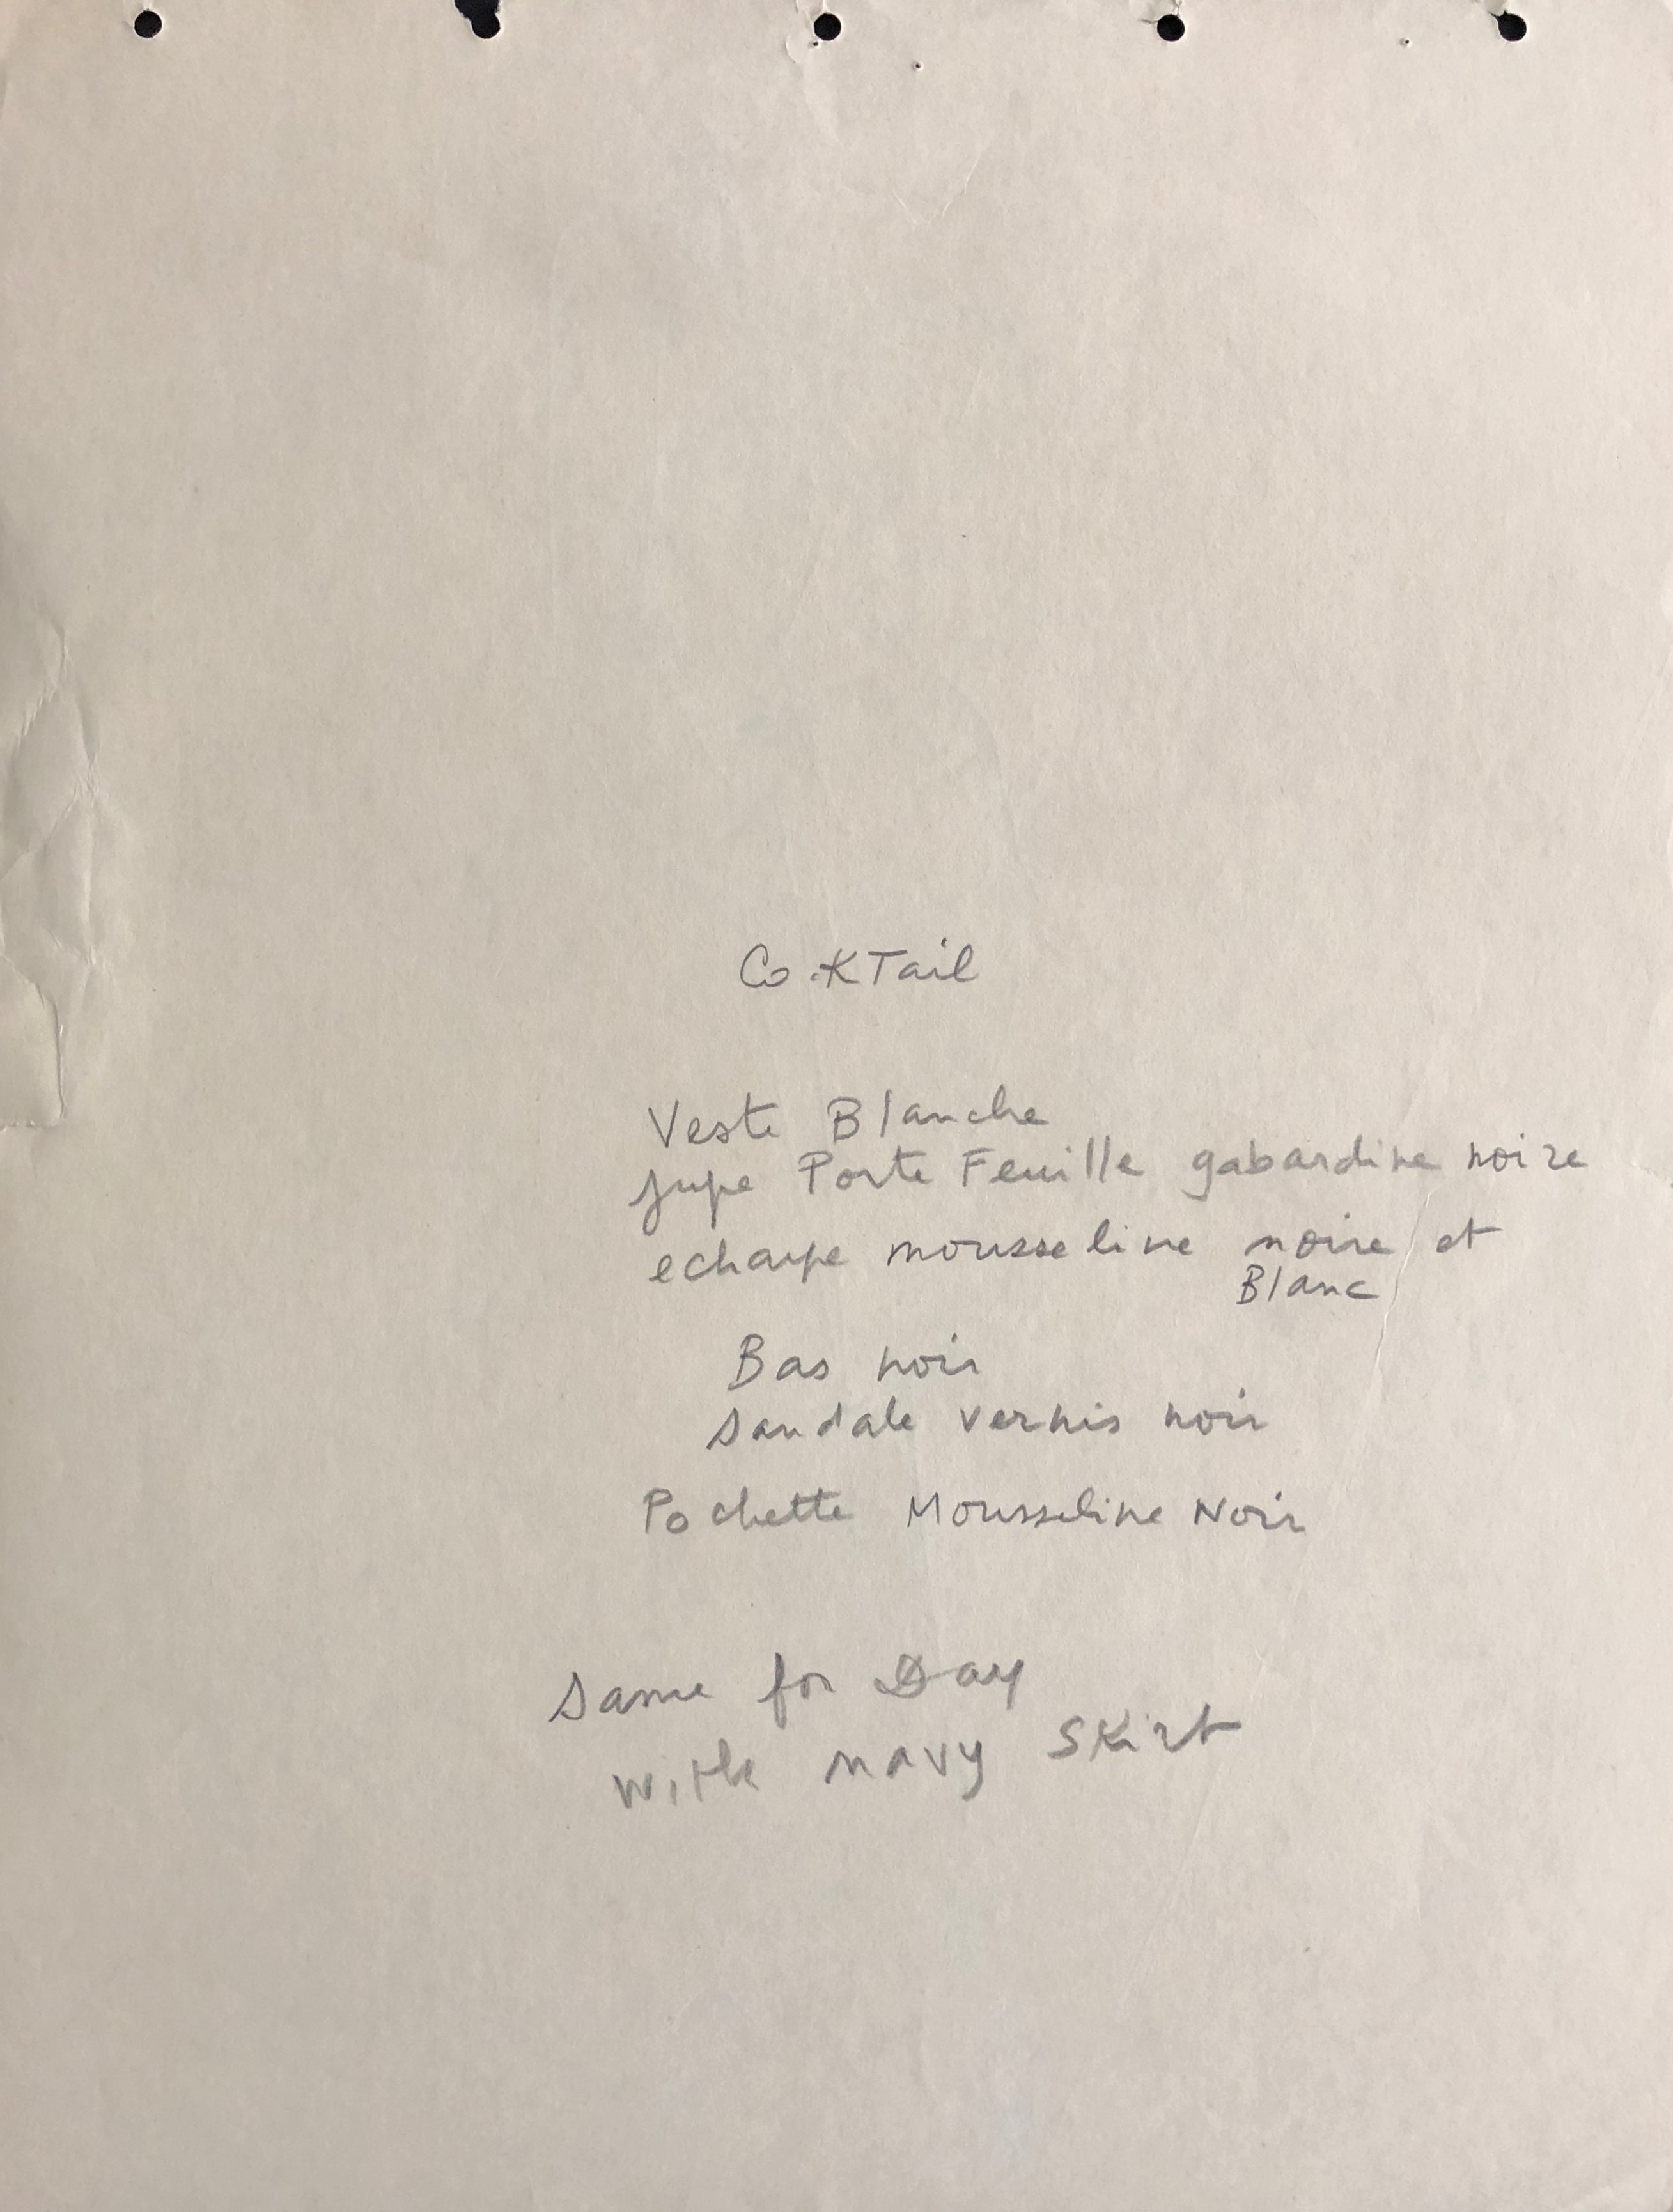 CockTail
Veste Blanche
jupe Porte Feuille gabardine noire
echarpe mousseline noire et
Blanc
Bas noir
sandale vernis noir
Pochette Mousseline Noir
Same for Day
with navy skirt